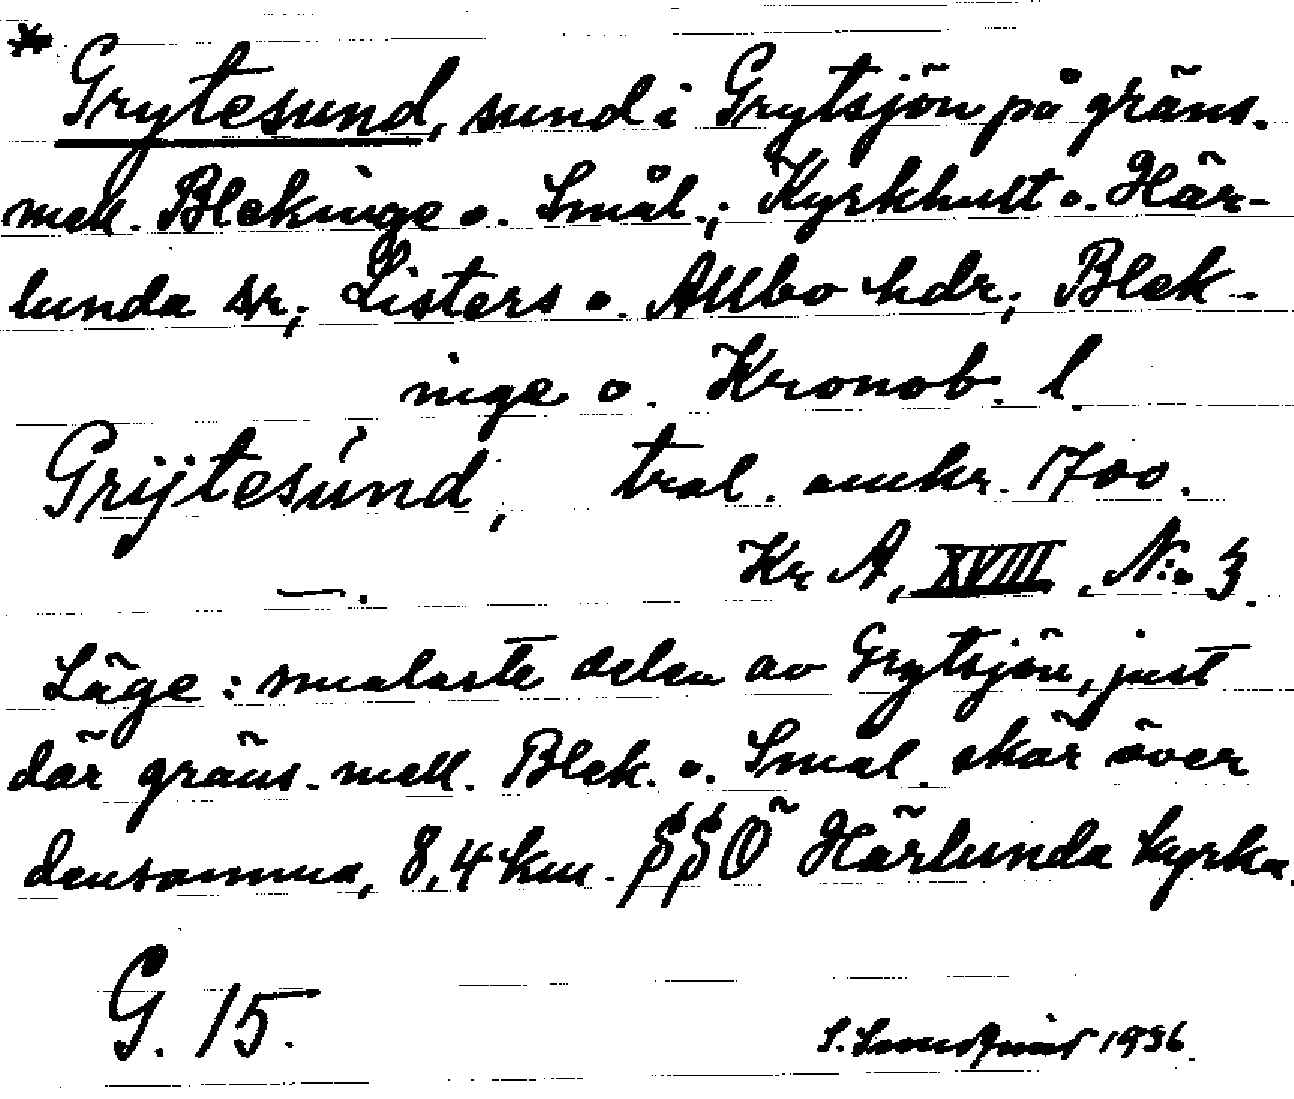 * Grytesund, sund i Grytsjön på gräns.
mell. Blekinge o. Smål.; Kyrkhult o. Här-
lunda sr; Listers o. Allbo hdr; Blek-
inge o. Kronob. l.
Grijtesúnd, tral. omkr. 1700.
Kr A, XVIII, N:o 3.
—.
Läge: smalaste delen av Grytsjön, just
där gräns. mell. Blek. o. Smål. skär över
densamma, 8,4 km. SSÖ Härlunda kyrka.
G. 15.
S. 1936.